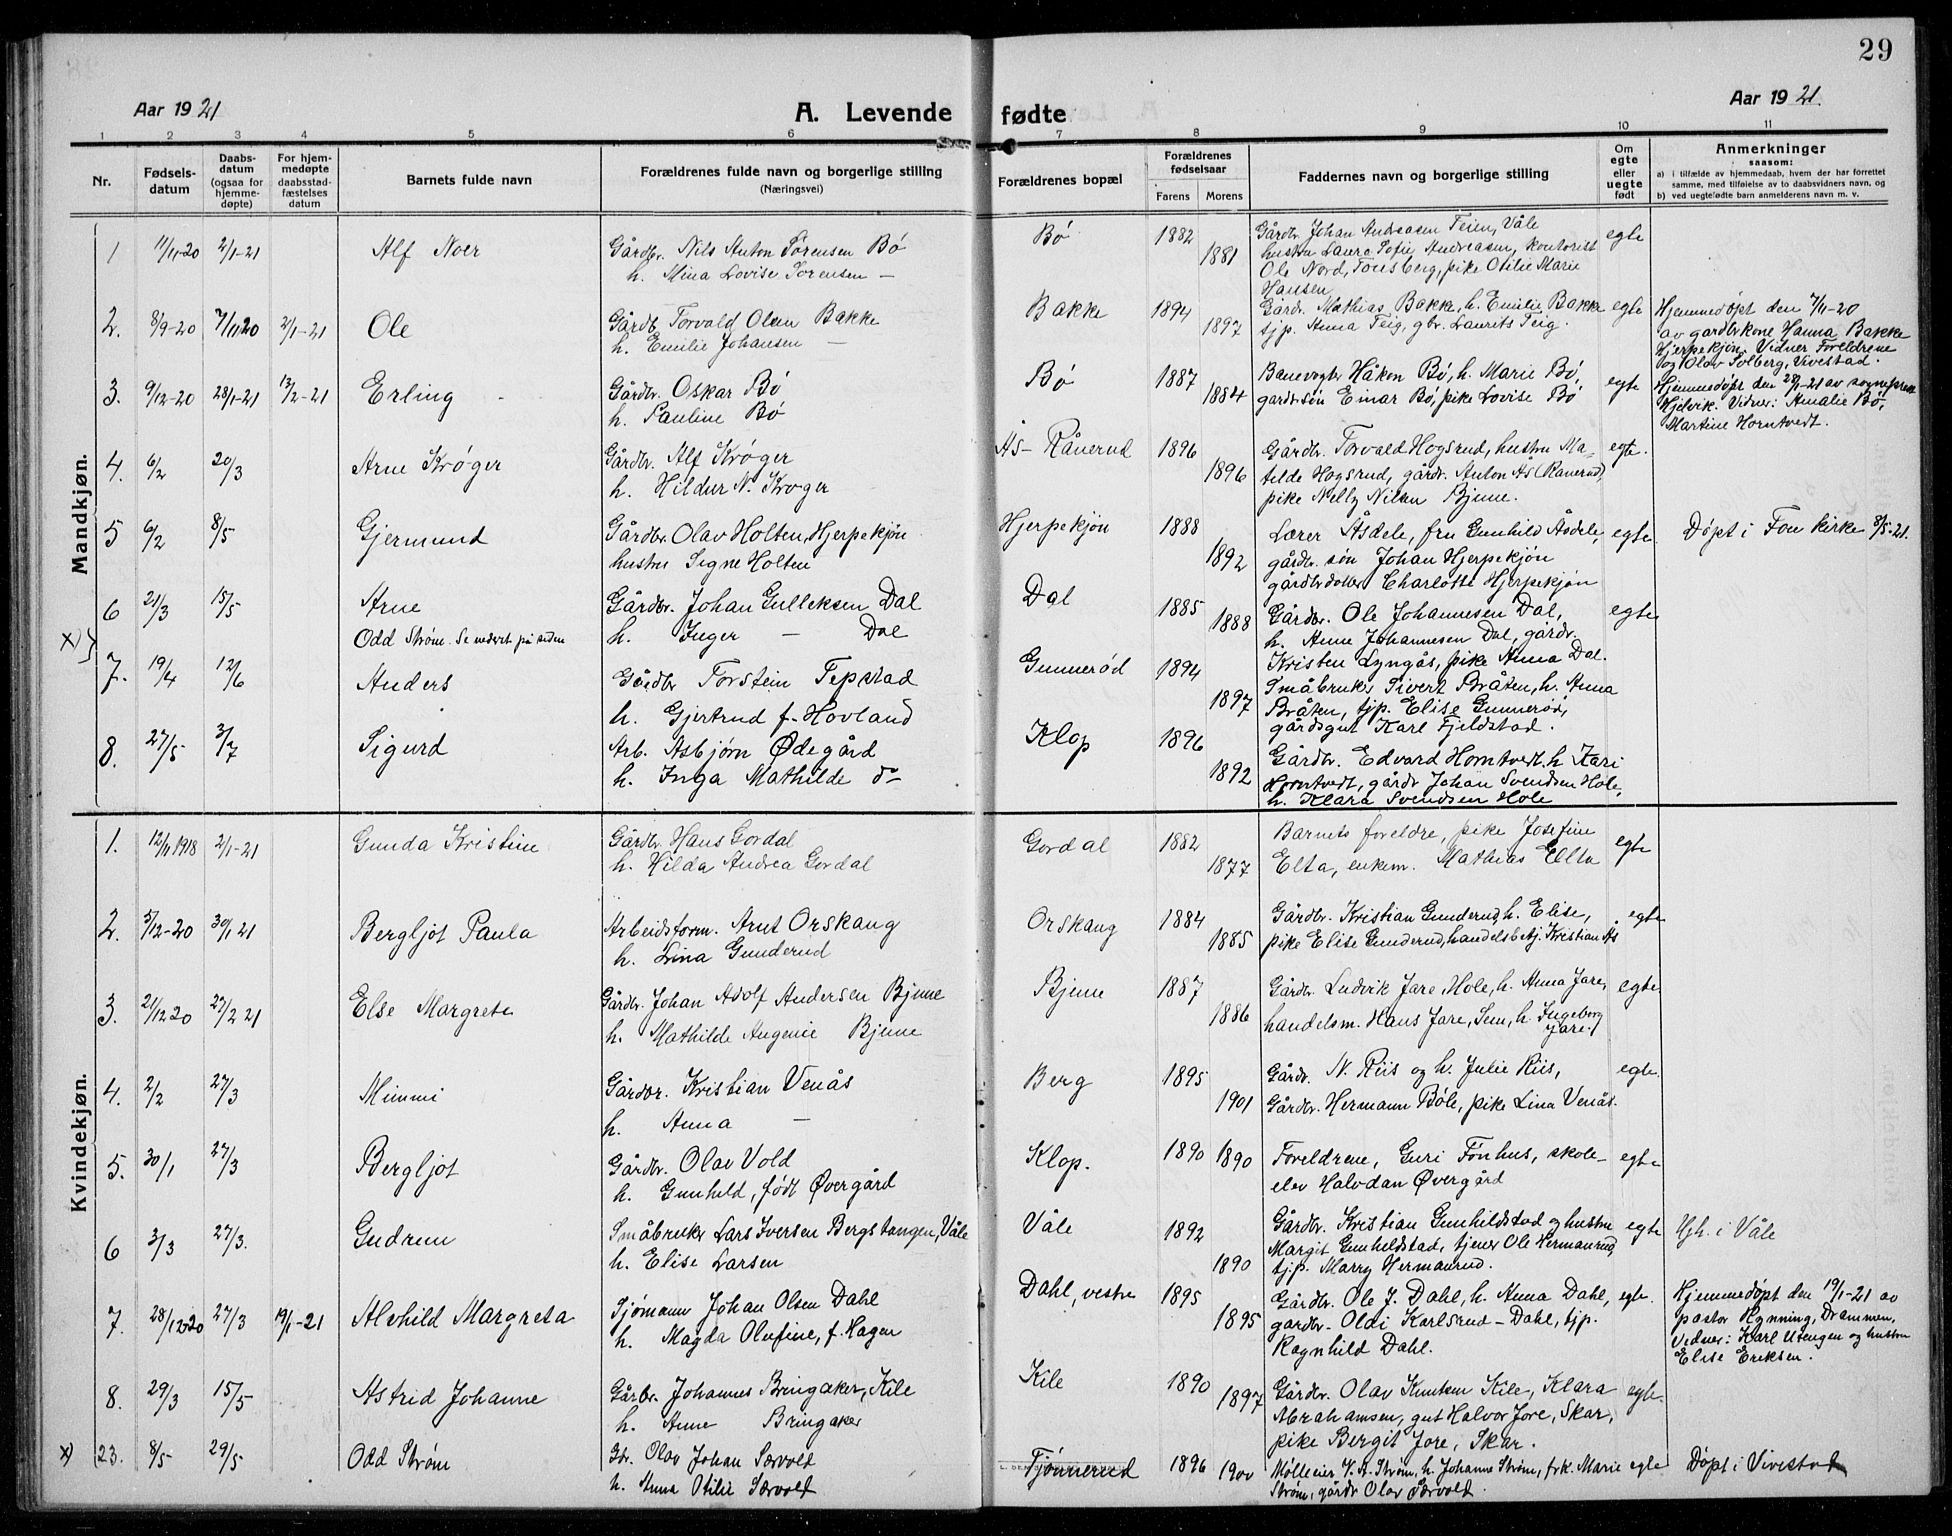 29
Aar 1921
A. Levende fødte
Aar 1921.
1 2 3 4 5 6 7 8 9 10 11
Nr.
Fødsels-
datum
Daabs-
datum
(ogsaa for
hjemme-
døpte)
For hjem-
medøpte
daabsstad-
fæstelses
datum
Barnets fulde navn
Forældrenes fulde navn og borgerlige stilling
(Næringsvei)
Forældrenes bopæl
Forældrenes
fødselsaar
Farens Morens
Faddernes navn og borgerlige stilling
Om
egte
eller
uegte
født
Anmerkninger
saasom:
a) i tilfælde av hjemmedaab, hvem der har forrettet
samme, med tilføielse av to daabsvidners navn, og
b) ved uegtefødte barn anmelderens navn m. v.
Mandkjøn.
1 11/11-20 2/1-21 Alf Noer
Gårdbr. Nils Anton Sørensen Bø
h. Mina Lovise Sørensen —
Bø 1882 1881
Gårdbr. Johan Andreasen Teien, Våle
hustru Laura Sofie Andreasen, kontorist
Ole Nord, Tønsberg, pike Otilie Marie
Hansen
egte
2. 8/9-20 7/11 20 2/1-21 Ole
Gårdb. Torvald Olsen Bakke
h. Emilie Johansen —
Bakke 1894 1897
Gårdr. Mathias Bakke, h. Emilie Bakke
tjp. Anna Teig, gbr. Laurits Teig.
egte
Hjemmedøpt den 7/11-20
av gardbrkone Hanna Bakke
Hjerpekjøn. Vidner Foreldrene
og Olav Solberg, Vivestad.
3. 9/12-20 28/1-21 13/2-21 Erling
Gårdbr. Oskar Bø
h. Pauline Bø
Bø 1887 1884
Banevogter Håkon Bø, h. Marie Bø,
gardbrsøn Einar Bø, pike Lovise Bø
egte
Hjemmedøpt den 28/1-21 av sogneprest
Hjelvik. Vidner: Amalie Bø,
Martine Horntvedt.
4. 6/2 20/3 Arne Krøger
Gårdbr. Alf Krøger
h. Hildur N. Krøger
Ås - Rånerud 1896 1896
Gårdbr. Torvald Hogsrud, hustru Ma-
tilde Hogsrud, gårdr. Anton Ås (Rånerud)
pike Nelly Nilsen Bjune.
egte.
5 6/2 8/5 Gjermund
Gårdbr. Olav Holten, Hjerpekjøn
hustru Signe Holten
Hjerpekjøn 1888 1892
Lærer Åsdele, fru Gunhild Åsdele,
gårdbr. søn Johan Hjerpekjøn
gårdbrdatter Charlotte Hjerpekjøn
egte
Døpt i Fon kirke 8/5-21.
6 21/3 15/5 Arne
Gårdbr. Johan Gulleksen Dal
h. Inger — Dal
Dal 1885 1888
Gårdbr. Ole Johannesen Dal,
h. Anne Johannesen Dal, gårdr.
Kristen Lyngås, pike Anna Dal.
egte
x) Odd Strøm. Se nederst på siden
7. 19/4 12/6 Anders
Gårdbr Torstein Tepstad
h. Gjertrud f. Hovland
Gunnerød 1894 1897
Småbruk. Sivert Bråten, h. Anna
Bråten, tjp. Elise Gunnerød,
gårdsgut Karl Fjeldstad.
8. 27/5 3/7 Sigurd
Arb. Asbjørn Ødegård
h. Inga Mathilde do
Klop 1896 1892
Gårdbr. Edvard Horntvedt, h Kari
Horntvedt, gårdr Johan Svendsen Hole,
h. Klara Svendsen Hole
Kvindekjøn.
1. 12/11 1918 2/1-21 Gunda Kristine
Gårdbr. Hans Gordal
h. Hilda Andrea Gordal
Gordal 1882 1877
Barnets foreldre, pike Josefine
Elta, enkem. Mathias Elta
egte
2. 5/12-20 30/1 21 Bergljot Paula
Arbeidsform. Arnt Orskaug
h. Lina Gunderud
Orskaug 1884 1885
Gårdbr. Kristian Gunderud, h. Elise,
pike Elise Gunderud, handelsbetj. Kristian Ås
egte
3. 21/12 20 27/2 21 Else Margrete
Gårdbr. Johan Adolf Andersen Bjune
h. Mathilde Augenie Bjune
Bjune 1887 1886
Gårdbr. Ludvik Jare Hole, h. Anna Jare,
handelsm. Hans Jare, Sem, h. Ingeborg
Jare.
egte.
4. 2/2 27/3 Mimmi
Gårdbr. Kristian Venås
h. Anna —
Berg 1895 1901
Gårdr. N. Riis og h. Julie Riis,
Gårdbr. Hermann Bøle, pike Lina Venås.
egte.
5. 30/1 27/3 Bergljot
Gårdbr. Olav Vold
h. Gunhild, født Øvergård
Klop. 1890 1890
Foreldrene, Guri Fønhus, skole-
elev Halvdan Øvergård
egte
6 3/3 27/3. Gudrun
Småbruker Lars Iversen Bergstangen, Våle
h. Elise Larsen
Våle 1892 1890
Gårdbr. Kristian Gunhildstad og hustru
Margit Gunhildstad, tjener Ole Hermanrud,
tjp. Marry Hermanrud.
egte
Hjh. i Våle
7. 28/12 20 27/3 19/1-21 Alvhild Margreta
Sjømann Johan Olsen Dahl
h. Magda Olufine, f. Hagen
Dahl, vestre 1895 1895
Gårdbr. Ole J. Dahl, h. Anna Dahl,
gardbr. Oldi Karlsrud - Dahl, tjp.
Ragnhild Dahl.
egte.
Hjemmedøpt den 19/1-21 av
pastor Rynning, Drammen,
Vidner: Karl Utengen og hustru
Elise Eriksen.
8. 29/3 15/5 Astrid Johanne
Gårbr. Johannes Bringaker, Kile
h. Anne Bringaker
Kile 1890 1897
Gårdbr. Olav Knutsen Kile, Klara
Abrahamsen, gut Halvor Jore, Skar,
pike Bergit Jore, Skar.
egte.
x) 23. 8/5 29/5 Odd Strøm
Gbr. Olav Johan Sørvold
h. Anna Otilie Sørvold
Tjønnerud 1896 1900
Mølleeier V. A. Strøm, h. Johanne Strøm, frk. Marie
Strøm, gårdr Olav Sørvold.
egte
Døpt i Vivestad